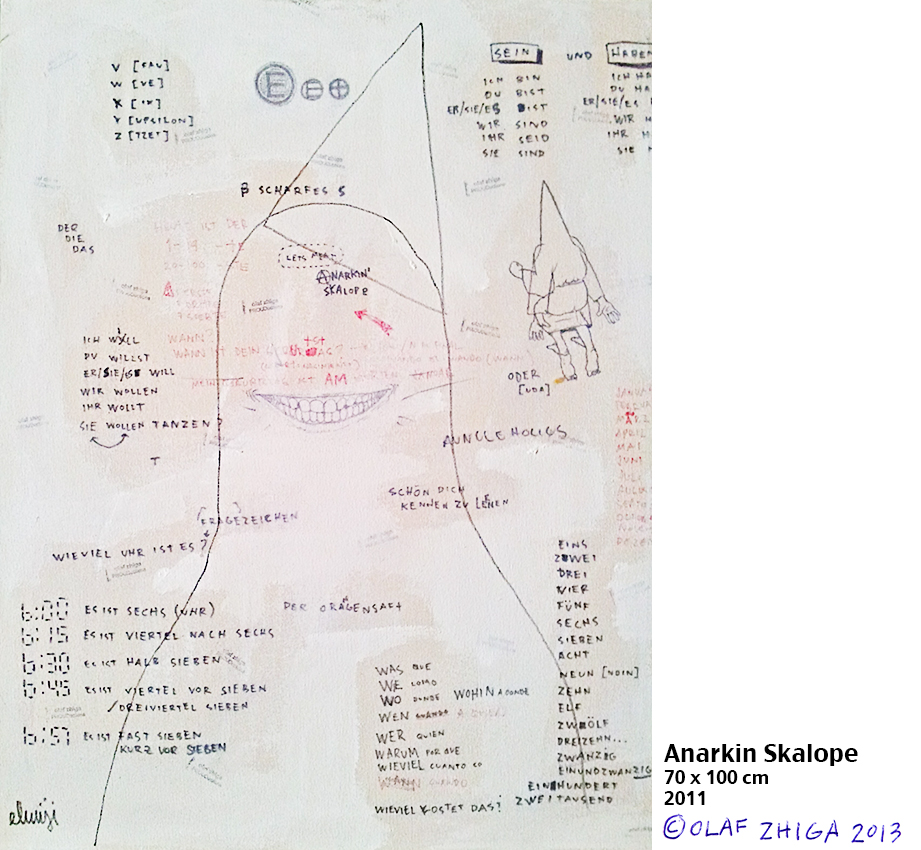 V [FAU]
W [VE]
X [IX]
Y [UPSILON]
Z [TZET]
E E
SEIN UND HABEN
ICH BIN
DU BIST
ER/SIE/ES IST
WIR SIND
IHR SEID
SIE SIND
ICH HA
DU HA
ER/SIE/ES
WIR H
IHR H
SIE H
β SCHARFES S
DER
DIE
DAS
HEUTE IST DER
1-19 -TE
LETS MEAT
ANARKIN'
SKALOPE
ICH WILL
DU WILLST
ER/SIE/ES WILL
WIR WOLLEN
IHR WOLLT
SIE WOLLEN TANZEN?
T
WANN
WANN IST DEIN
AM
ODER
[UDA]
JANUAR
FEBRUAR
MÄRZ
APRIL
MAI
JUNI
JULI
AUNCLE HOLIGS
SCHÖN DICH
KENNEN ZU LENEN
[FRAGEZEICHEN
WIEVIEL UHR IST ES?
6:00 ES IST SECHS (UHR)
6:15 ES IST VIERTEL NACH SECHS
6:30 ES IST HALB SIEBEN
6:45 ES IST VIERTEL VOR SIEBEN
/DREIVIERTEL SIEBEN
6:57 ES IST FAST SIEBEN
KURZ VOR SIEBEN
DER ORANGENSAFT
WAS QUE
WE COMO
WO DONDE WOHIN A DONDE
WEN CUANDO A QUIEN
WER QUIEN
WARUM POR QUE
WIEVIEL CUANTO CO
WANN CUANDO
WIEVIEL KOSTET DAS?
EINS
ZWEI
DREI
VIER
FÜNF
SECHS
SIEBEN
ACHT
NEUN [NOIN]
ZEHN
ELF
ZWÖLF
DREIZEHN...
ZWANZIG
EINUNDZWANZIG
EINHUNDERT
ZWEITAUSEND
eluviji
Anarkin Skalope
70 x 100 cm
2011
© OLAF ZHIGA 2013